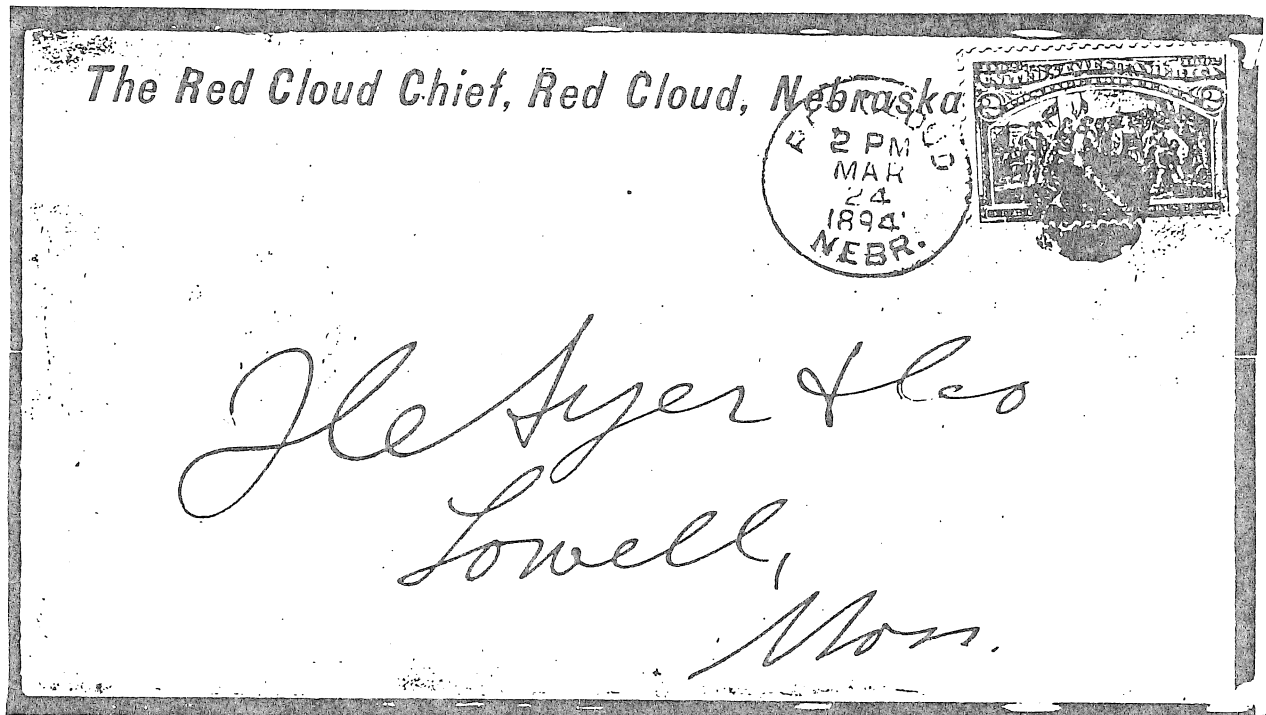 The Red Cloud Chief, Red Cloud, Nebraska
RED CLOUD
2 PM
MAR
24
1894
NEBR.
UNITED STATES OF AMERICA
2 2
J C Ayer & Co
Lowell,
Mass.